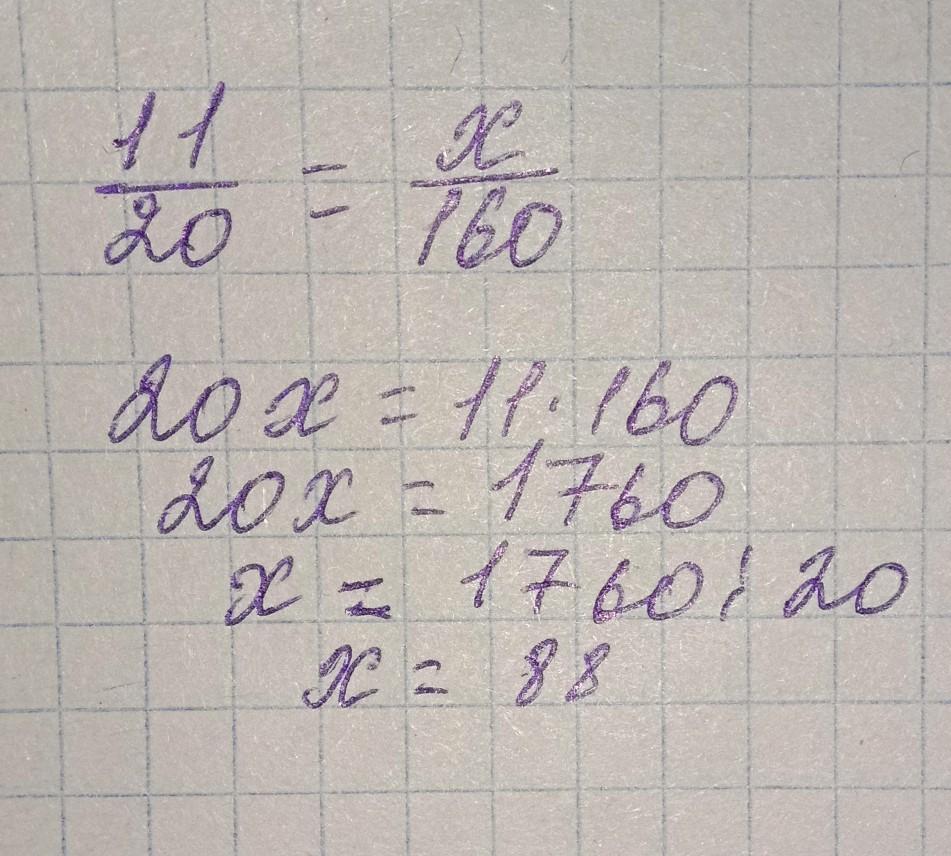 11/20 = x/160
20x = 11·160
20x = 1760
x = 1760:20
x = 88